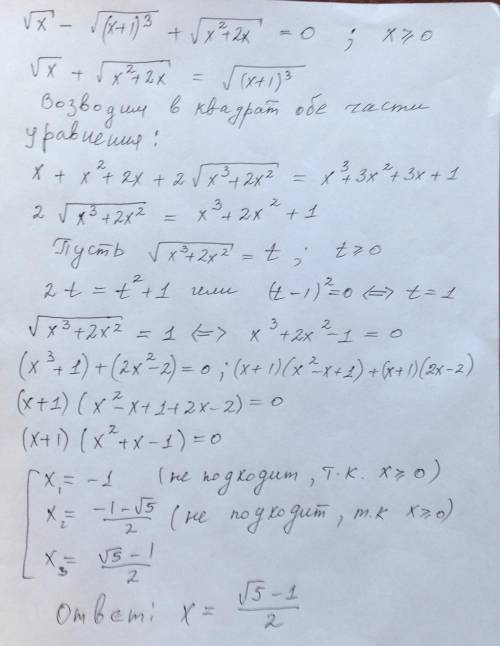 √x - √(x+1)³ + √x²+2x = 0 ; x⩾0
√x + √x²+2x = √(x+1)³
Возводим в квадрат обе части
уравнения:
x + x² + 2x + 2√x³+2x² = x³+3x²+3x+1
2√x³+2x² = x³+2x²+1
Пусть √x³+2x² = t ; t⩾0
2t = t²+1 или (t-1)²=0 <=> t=1
√x³+2x² = 1 <=> x³+2x²-1=0
(x³+1)+(2x²-2)=0 ; (x+1)(x²-x+1)+(x+1)(2x-2)
(x+1)(x²-x+1+2x-2)=0
(x+1)(x²+x-1)=0
x₁= -1 (не подходит, т.к. x⩾0)
x₂= (-1-√5)/2 (не подходит, т.к x⩾0)
x₃= (√5-1)/2
Ответ: x = (√5-1)/2